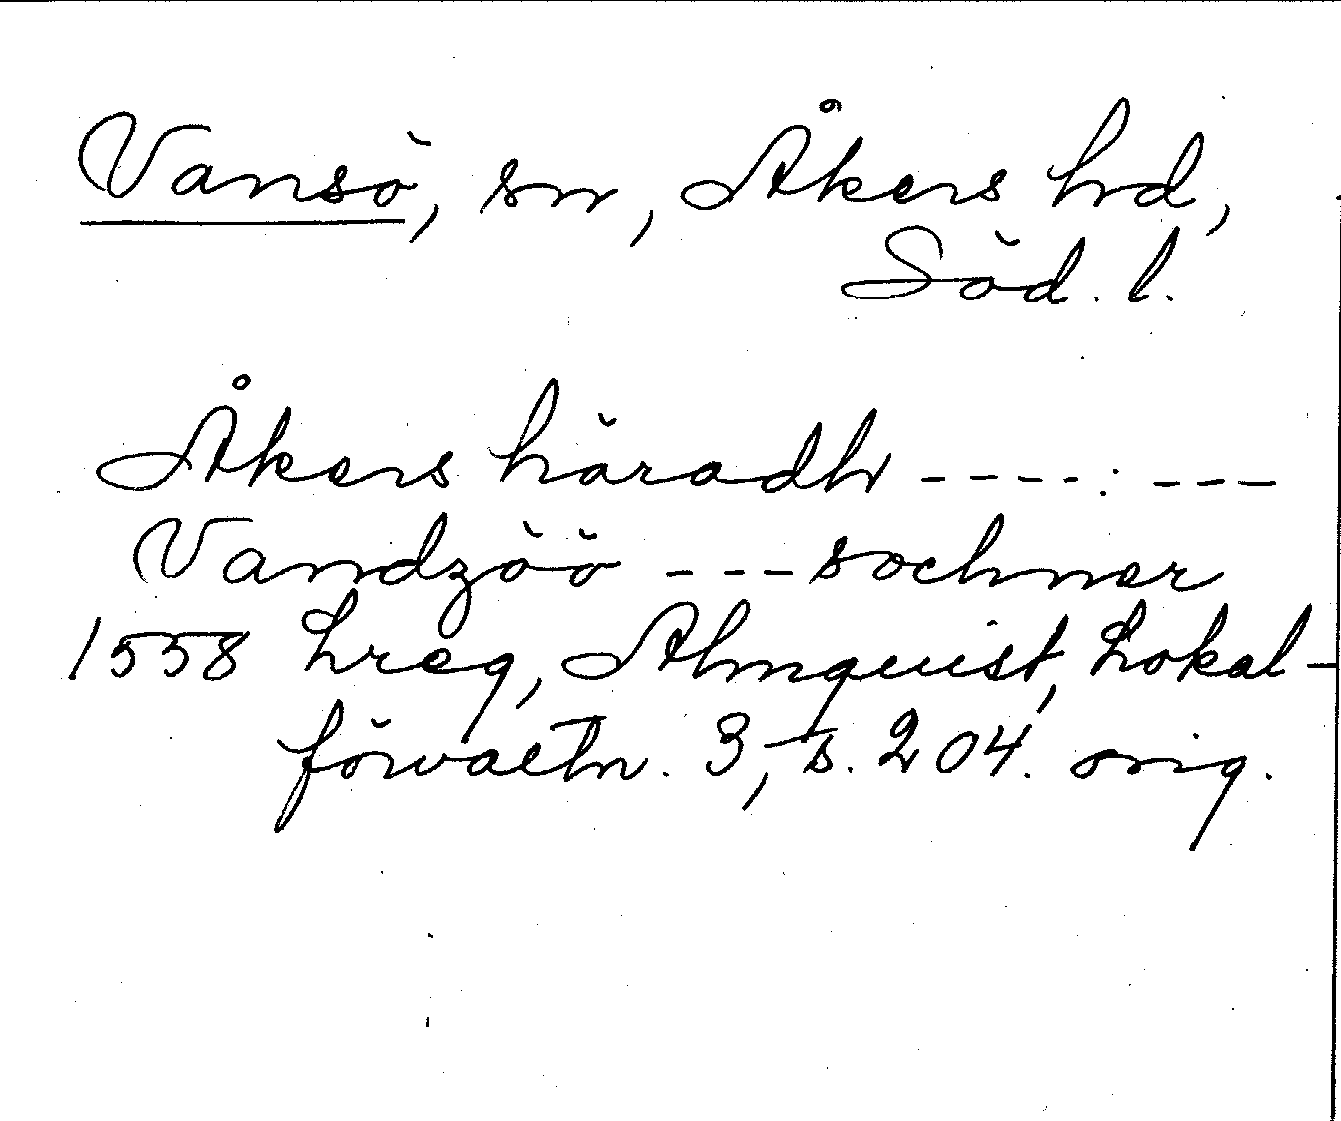 Vansö, sn, Åkers hd,
Söd. l.
Åkers häradh ----- ---
Vandzöö --- sochner
1558 Lreg, Almquist, Lokal-
förvaltn. 3, s. 204. orig.